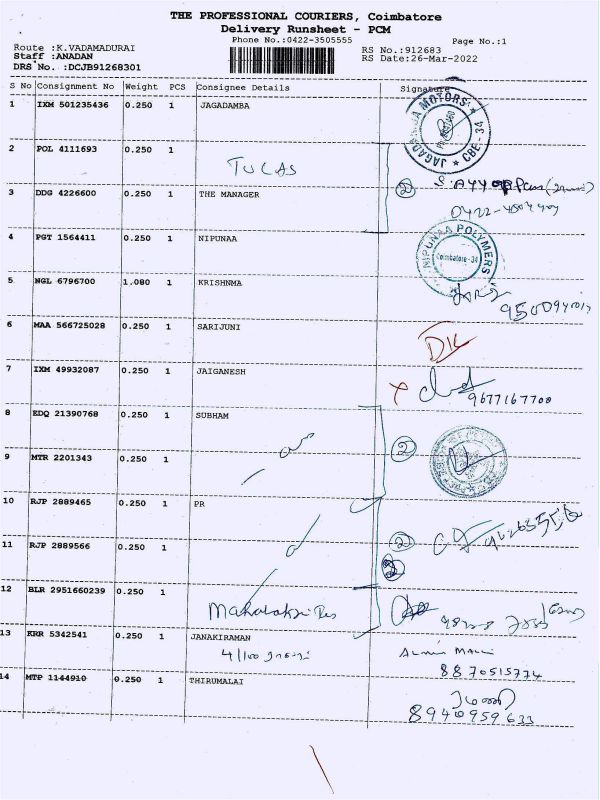 THE PROFESSIONAL COURIERS, Coimbatore
Delivery Runsheet - PCM
Phone No.:0422-3505555
Page No.:1
Route :K.VADAMADURAI
Staff :ANADAN
DRS No. :DCJB91268301
RS No.:912683
RS Date:26-Mar-2022
S No Consignment No Weight PCS Consignee Details Signature
1 IXM 501235436 0.250 1 JAGADAMBA
JAGADAMBA MOTORS * CBE-34 *
2 POL 4111693 0.250 1
TUCAS
3 DDG 4226600 0.250 1 THE MANAGER
2
4 PGT 1564411 0.250 1 NIPUNAA
NIPUNAA POLYMERS
Coimbatore - 34
5 NGL 6796700 1.080 1 KRISHNMA
6 MAA 566725028 0.250 1 SARIJUNI
7 IXM 49932087 0.250 1 JAIGANESH
9677167700
8 EDQ 21390768 0.250 1 SUBHAM
2
9 MTR 2201343 0.250 1
10 RJP 2889465 0.250 1 PR
11 RJP 2889566 0.250 1
2
12 BLR 2951660239 0.250 1
13 KRR 5342541 0.250 1 JANAKIRAMAN
4/100
8870515774
14 MTP 1144910 0.250 1 THIRUMALAI
8940959633